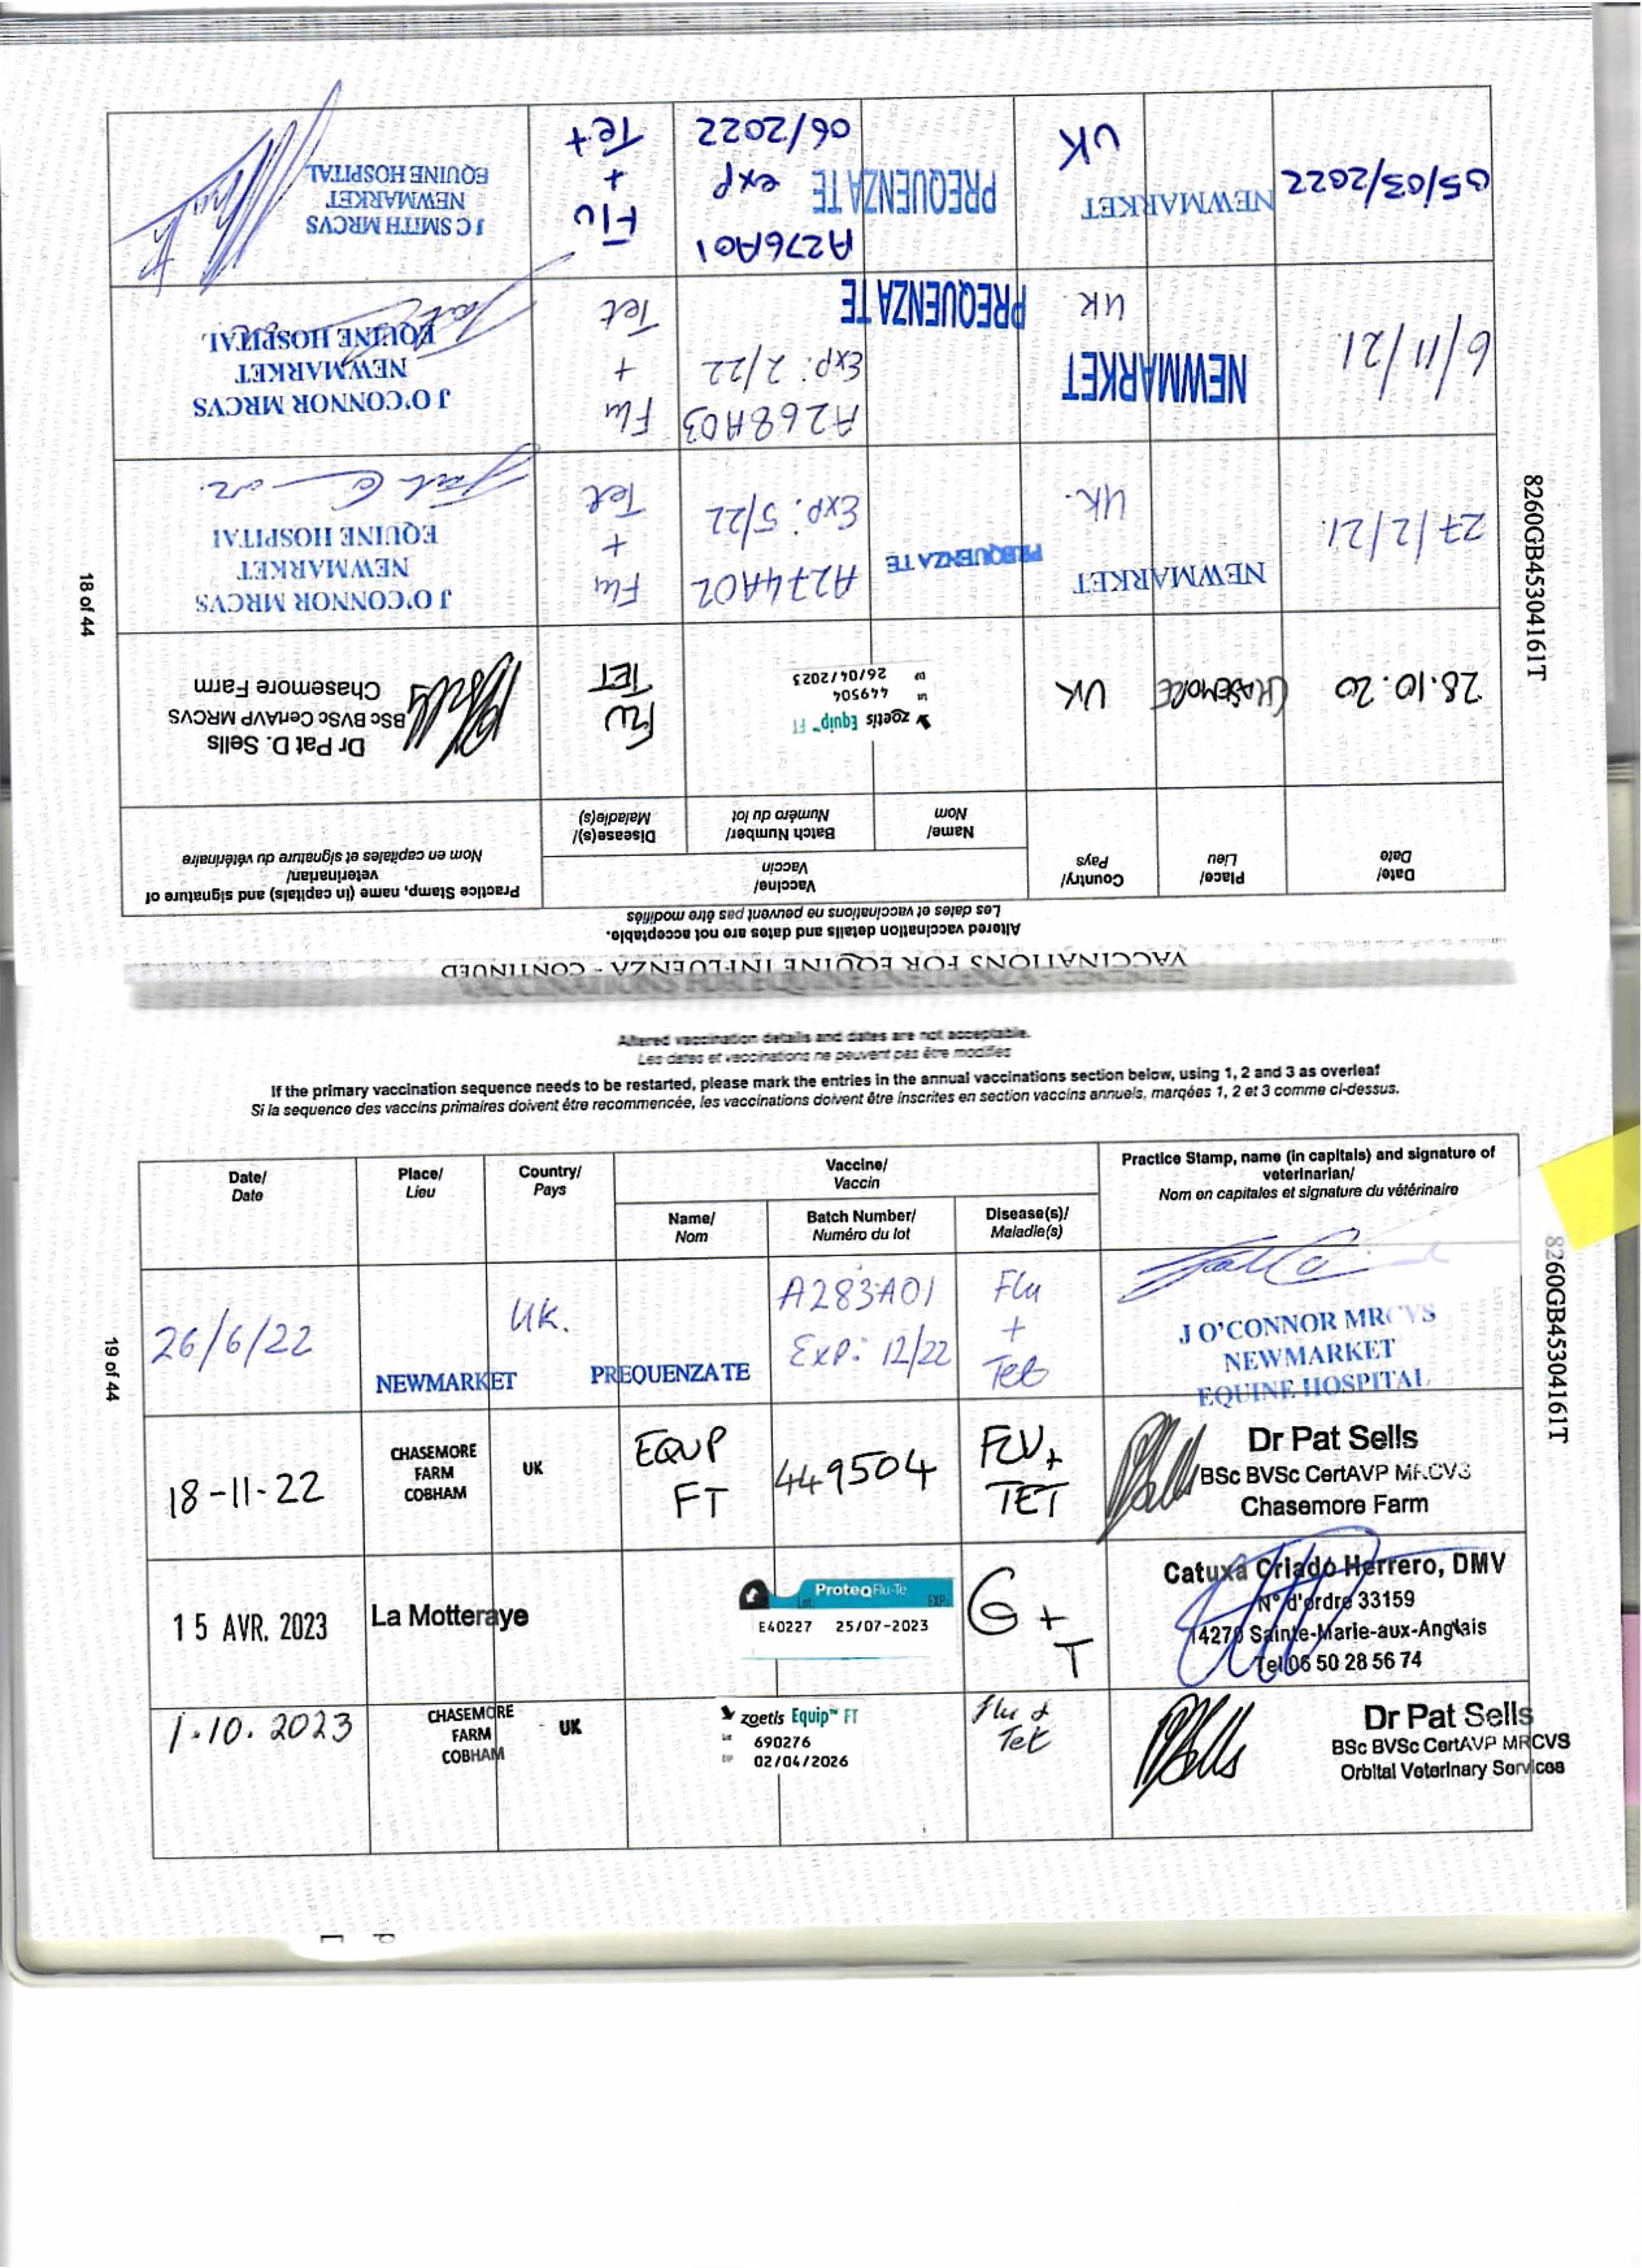 VACCINATIONS FOR EQUINE INFLUENZA - CONTINUED
Altered vaccination details and dates are not acceptable.
Les dates et vaccinations ne peuvent pas être modifiés
Date/
Date
Place/
Lieu
Country/
Pays
Vaccine/
Vaccin
Name/
Nom
Batch Number/
Numéro du lot
Disease(s)/
Maladie(s)
Practice Stamp, name (in capitals) and signature of
veterinarian/
Nom en capitales et signature du vétérinaire
28.10.20
CHASEMORE
UK
zoetis Equip™ FT
449504
26/04/2023
FLU
TET
Dr Pat D. Sells
BSc BVSc CertAVP MRCVS
Chasemore Farm
27/2/21.
NEWMARKET
UK.
PREQUENZATE
A274A02
Exp: 5/22
Flu
+
Tet
J O'CONNOR MRCVS
NEWMARKET
EQUINE HOSPITAL
6/11/21
NEWMARKET
UK.
PREQUENZATE
A268A03
Exp: 2/22
Flu
+
Tet
J O'CONNOR MRCVS
NEWMARKET
EQUINE HOSPITAL
05/03/2022
NEWMARKET
UK
PREQUENZATE
A276A01
exp
06/2022
Flu
+
Tet
J C SMITH MRCVS
NEWMARKET
EQUINE HOSPITAL
18 of 44
8260GB45304161T
Altered vaccination details and dates are not acceptable.
Les dates et vaccinations ne peuvent pas être modifiés
If the primary vaccination sequence needs to be restarted, please mark the entries in the annual vaccinations section below, using 1, 2 and 3 as overleaf
Si la sequence des vaccins primaires doivent être recommencée, les vaccinations doivent être inscrites en section vaccins annuels, marqées 1, 2 et 3 comme ci-dessus.
Date/
Date
Place/
Lieu
Country/
Pays
Vaccine/
Vaccin
Name/
Nom
Batch Number/
Numéro du lot
Disease(s)/
Maladie(s)
Practice Stamp, name (in capitals) and signature of
veterinarian/
Nom en capitales et signature du vétérinaire
26/6/22
NEWMARKET
UK.
PREQUENZATE
A283A01
Exp: 12/22
Flu
+
Tet
J O'CONNOR MRCVS
NEWMARKET
EQUINE HOSPITAL
18-11-22
CHASEMORE
FARM
COBHAM
UK
EQUP
FT
449504
FLU+
TET
Dr Pat Sells
BSc BVSc CertAVP MRCVS
Chasemore Farm
15 AVR. 2023
La Motteraye
ProteqFlu-Te
Lot: EXP:
E40227 25/07-2023
G +
T
Catuxa Criado Herrero, DMV
N° d'ordre 33159
14270 Sainte-Marie-aux-Anglais
Tel 06 50 28 56 74
1.10.2023
CHASEMORE
FARM
COBHAM
UK
zoetis Equip™ FT
690276
02/04/2026
flu &
Tet
Dr Pat Sells
BSc BVSc CertAVP MRCVS
Orbital Veterinary Services
19 of 44
8260GB45304161T